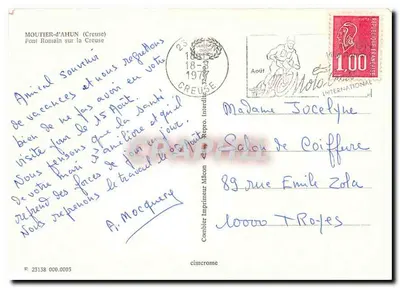 MOUTIER-D'AHUN (Creuse)
Pont Romain sur la Creuse
Amical souvenir
de vacances et nous regrettons
bien de ne pas avoir eu votre
visite pour le 15 Août.
Nous pensons que la santé
de votre mari s'améliore et qu'il
reprend des forces de jour en jour.
Nous reprenons le travail
A. Mocquery
23158 006.0095
Combier Imprimeur Mâcon
Repro. Interdite
cimcrome
23
18-8
CREUSE
Août
Moto
INTERNATIONAL
1,00
Madame Jocelyne
Salon de Coiffure
89 rue Emile Zola
10000 TROYES